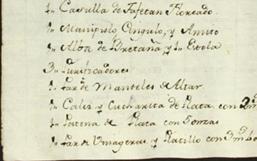 1,, Casulla de Tafetan Floreado
1,, Manipulo Cingulo, y Amito
1,, Alba de Bretaña, y la Estola
3,, Purificadores
1,, Par de Manteles de Altar
1,, Caliz y Cucharita de Plata con
1,, Patena de Plata con 5 onzas
1,, Par de Vinageras y Platillo con 3 m